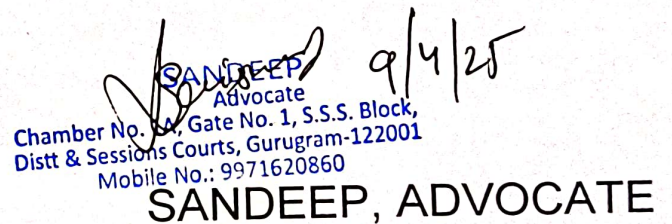 SANDEEP 9/4/25
Advocate
Chamber No. A, Gate No. 1, S.S.S. Block,
Distt & Sessions Courts, Gurugram-122001
Mobile No.: 9971620860
SANDEEP, ADVOCATE